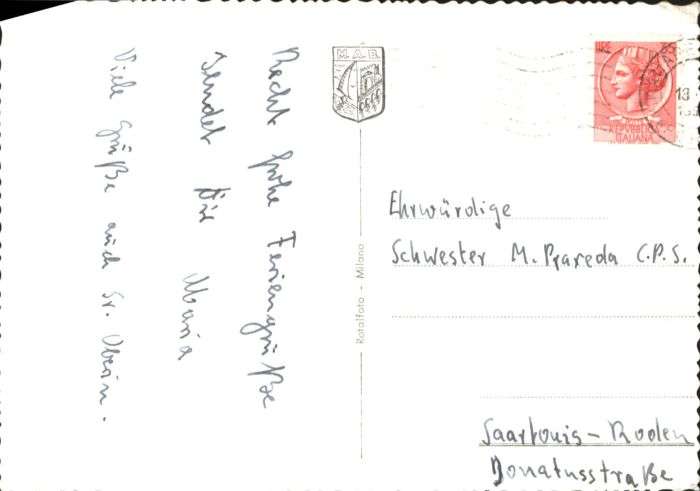 Recht frohe Feriengrüße
sendet Dir
Maria
Viele Grüße auch Sr. Oberin.
M.A.B.
Rotalfoto - Milano
REPUBBLICA
ITALIANA
13
Ehrwürdige
Schwester M. Praxeda C.P.S.
Saarlouis - Roden
Donatusstraße